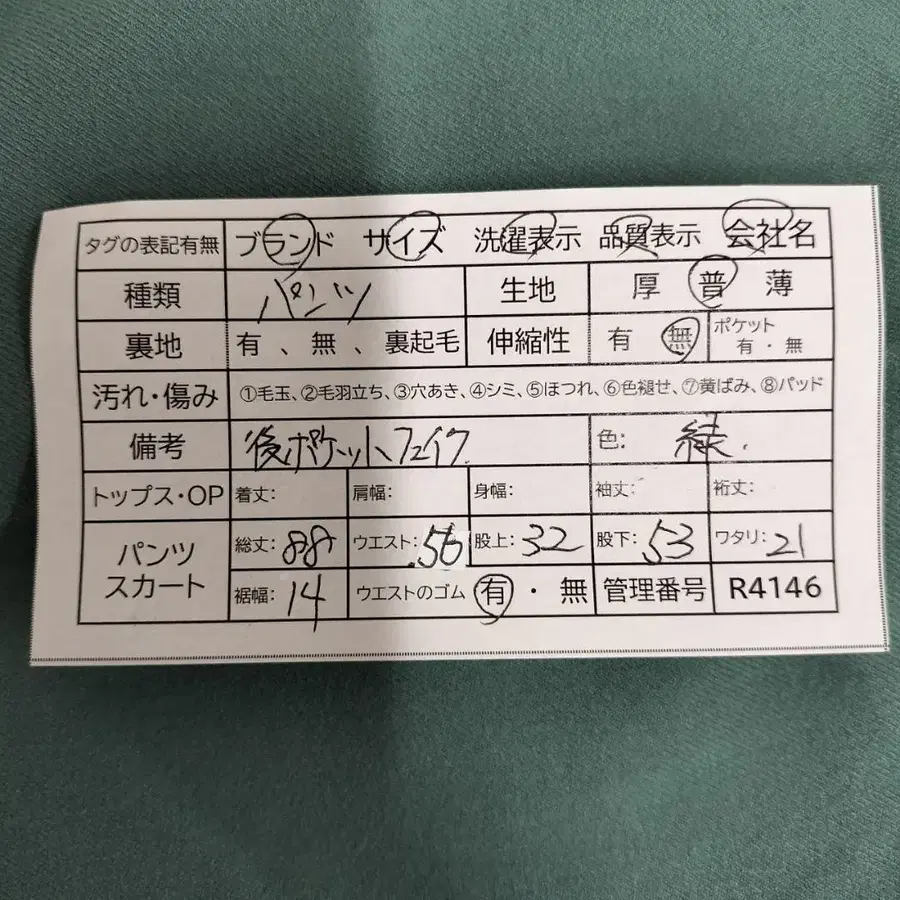 タグの表記有無 ブランド サイズ 洗濯表示 品質表示 会社名
種類 パンツ 生地 厚 普 薄
裏地 有 、 無 、 裏起毛 伸縮性 有 無 ポケット 有 ・ 無
汚れ・傷み ①毛玉、②毛羽立ち、③穴あき、④シミ、⑤ほつれ、⑥色褪せ、⑦黄ばみ、⑧パッド
備考 後ポケットフェイク 色: 緑
トップス・OP 着丈: 肩幅: 身幅: 袖丈: 裄丈:
パンツ スカート 総丈: 88 ウエスト: 56 股上: 32 股下: 53 ワタリ: 21
裾幅: 14 ウエストのゴム 有 ・ 無 管理番号 R4146